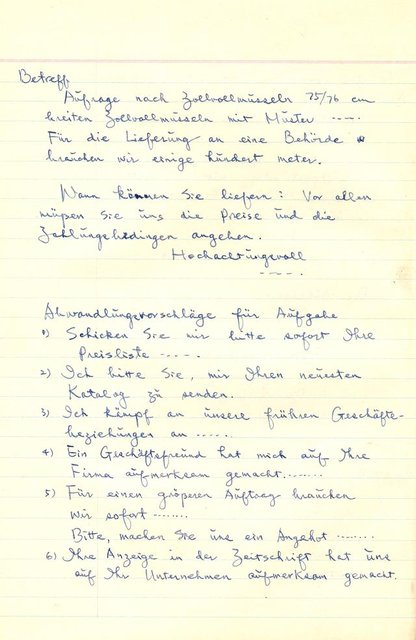 Betreff:
Aufrage nach Zollvollmusseln 75/76 cm
breiten Zollvollmusseln mit Muster -----
Für die Lieferung an eine Behörde
brauchen wir einige hundert meter.
Wann können Sie liefern? Vor allen
müßen Sie uns die Preise und die
Zahlungsbedingen angeben.
Hochachtungsvoll
-----.
Abwandlungsvorschläge für Aufgabe
1) Schicken Sie mir bitte sofort Ihre
Preisliste -----.
2) Ich bitte Sie, mir Ihren neuesten
Katalog zu senden.
3) Ich kämpf an unsere frühren Geschäfts-
beziehungen an .....
4) Ein Geschäftsfreund hat mich auf Ihre
Firma aufmerksam gemacht.......
5) Für einen größeren Auftrag brauchen
wir sofort .......
Bitte, machen Sie uns ein Angebot .......
6) Ihre Anzeige in der Zeitschrift hat uns
auf Ihr Unternehmen aufmerksam gemacht.